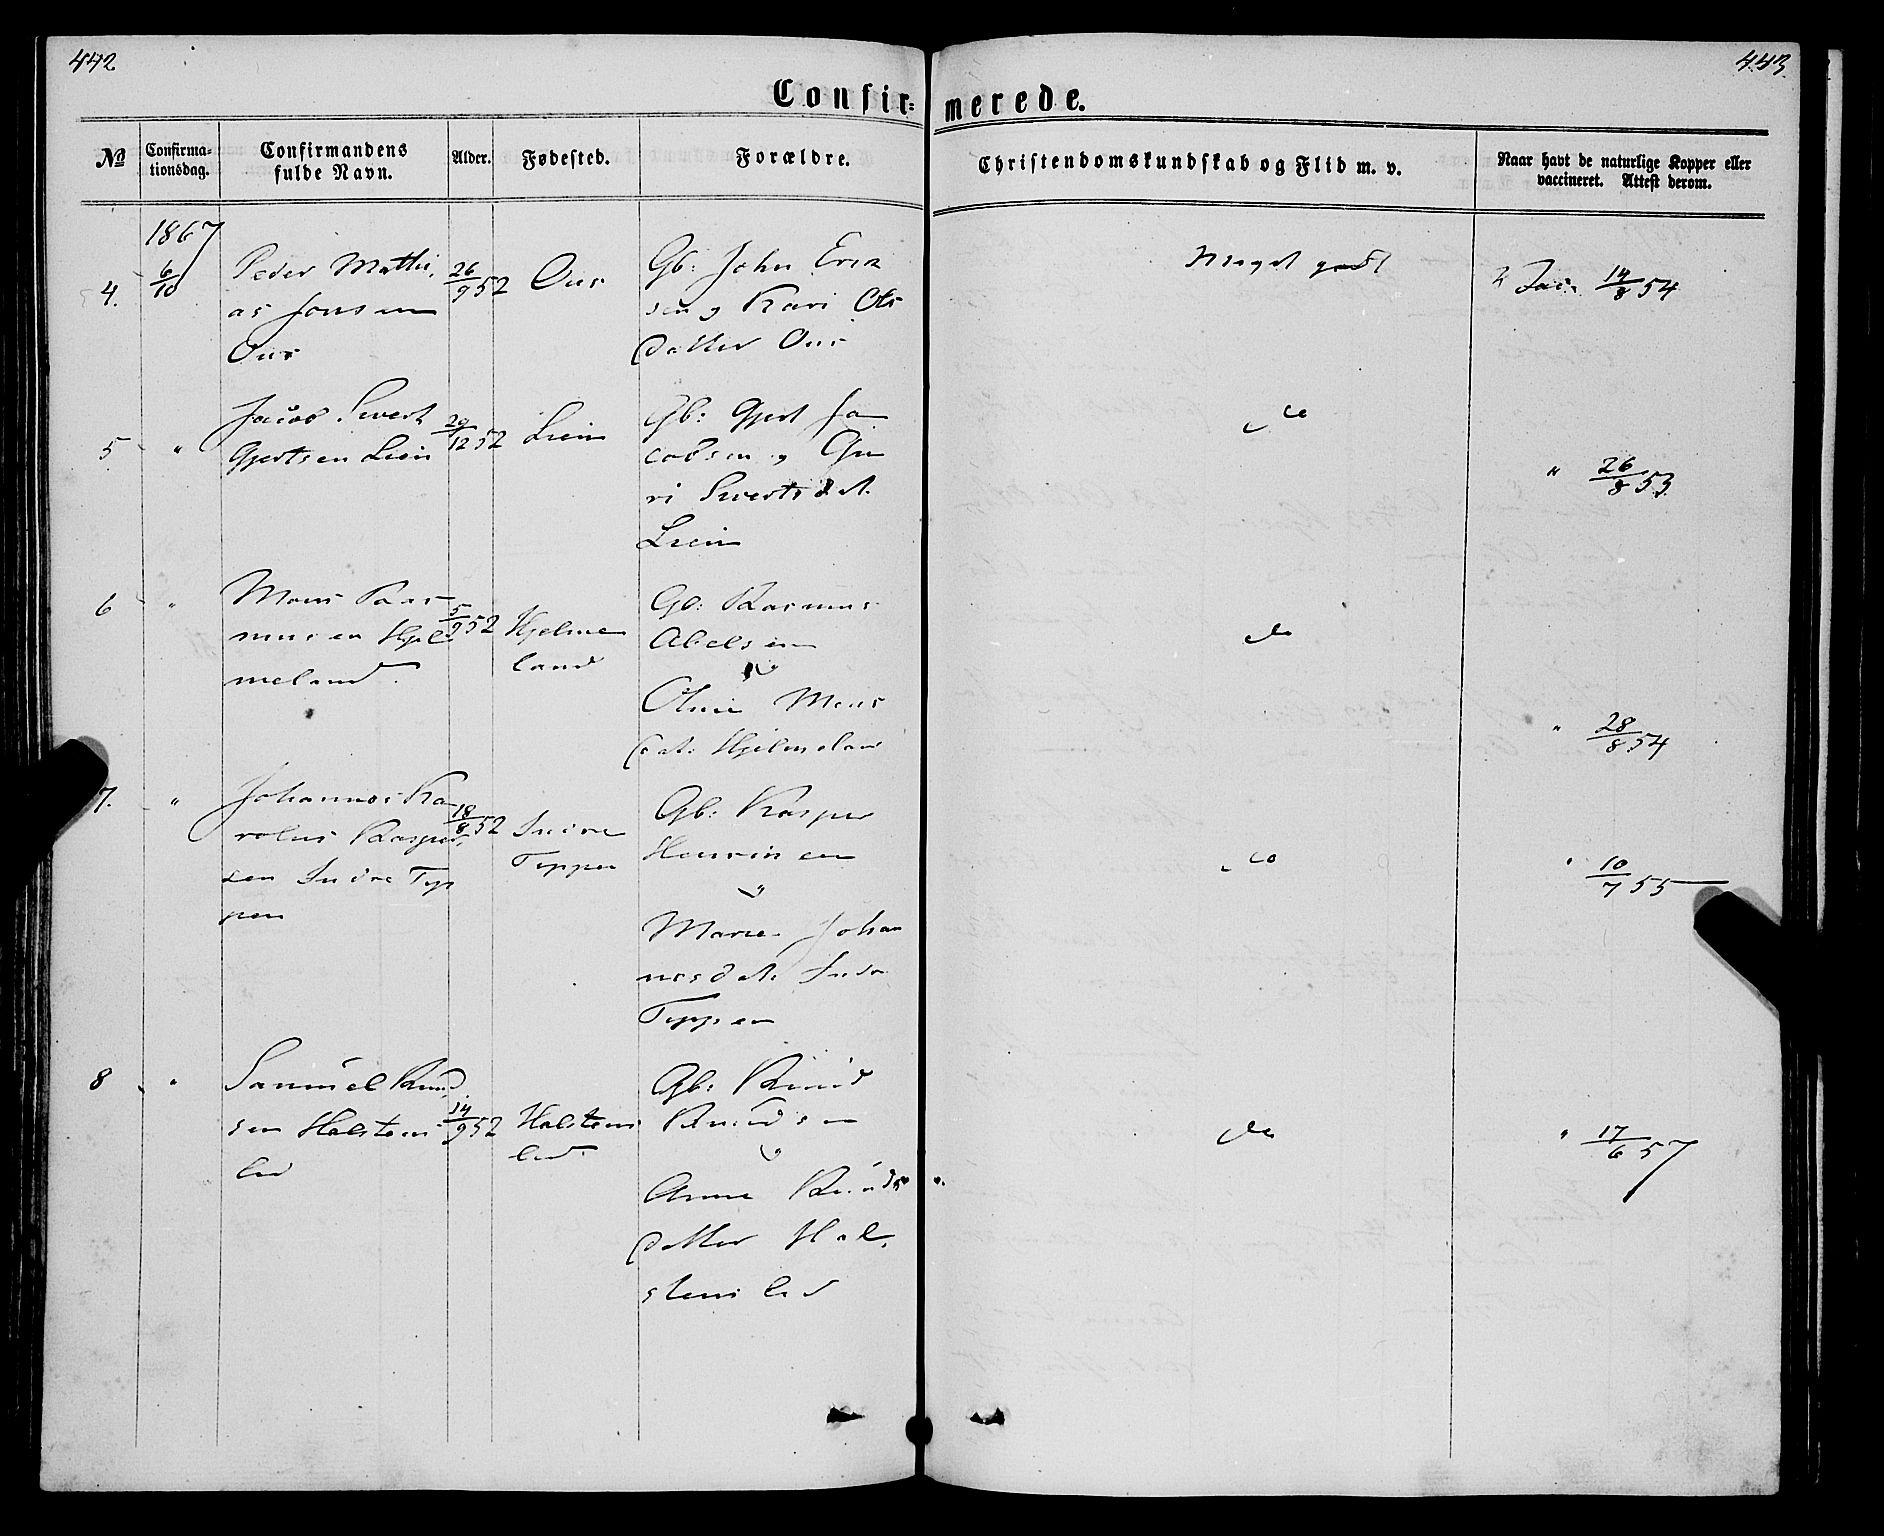 442
443.
Confir-
merede.
No
Confirma-
tionsdag.
Confirmandens
fulde Navn.
Alder.
Fødested.
Forældre.
Christendomskundskab og Flid m. v.
Naar havt de naturlige Kopper eller
vaccineret. Attest derom.
1867
4.
6/10
Peder Mathi,
as Jonsen
Ous
26/9 52
Ous
Gb: John Erik
sen og Kari Ols
datter Ous
Meget godt
14/8 54
5
"
Jacob Sivert
Gjertsen Lien
29/12 52
Lien
Gb: Gjert Ja
cobsen og Gu
ri Sivertsdat.
Lien
do
" 26/8 53
6
"
Mons Ras
musen Hjel
meland.
5/9 52
Hjelme
land
Gb: Rasmus
Abelsen
og
Oline Mons
dat: Hjelmelan
do
" 28/8 54
7.
"
Johannes Ka
rolus Kasper,
sen Indre Tep
pen
18/8 52
Indre
Teppen
Gb: Kasper
Henriksen
og
Marie Johan
nesdat. Indre
Teppen
do
" 10/7 55
8
"
Samuel Knud
sen Halstens
lid
14/9 52
Halstens
lid.
Gb: Knud
Knudsen
og
Anne Knuds
datter Hal,
stenslid
do
" 17/6 57